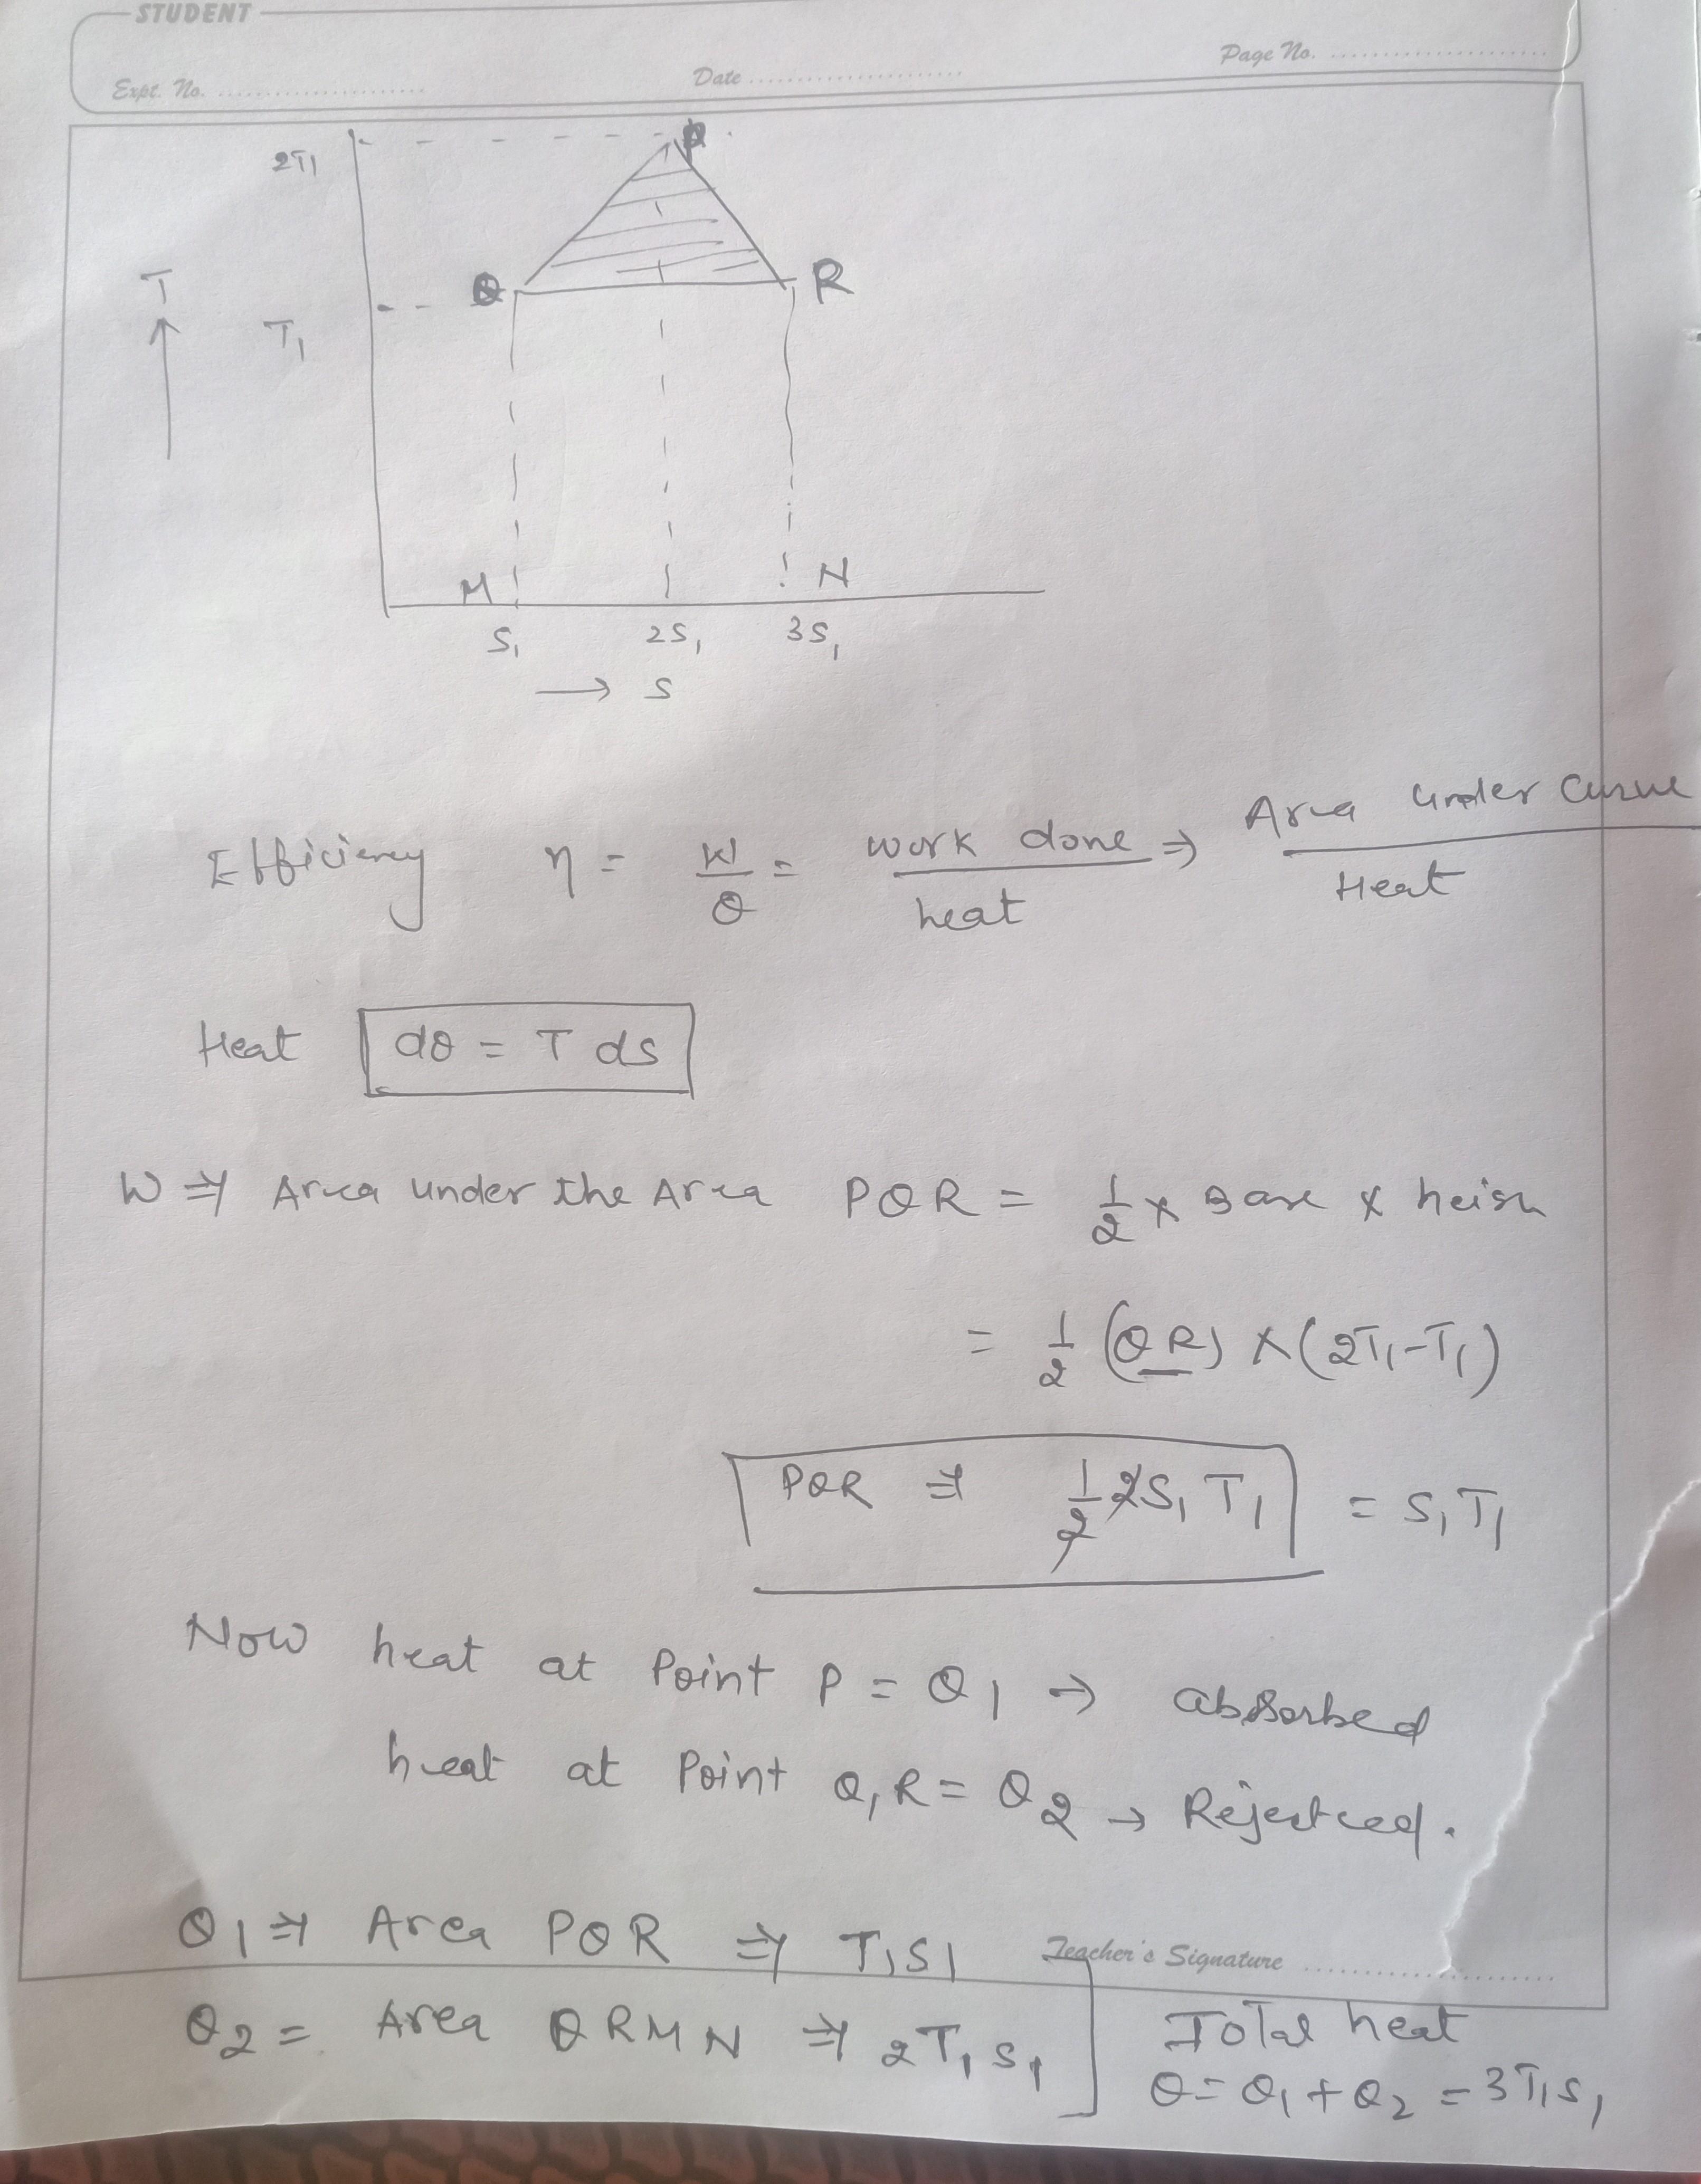 STUDENT
Expt. No. Date Page No.
2T1 P
T Q R
T1
M N
S1 2S1 3S1
→ S
Efficiency η = W/Q = work done/heat ⇒ Area under Curve/Heat
Heat dQ = T ds
W ⇒ Area under the Area PQR = 1/2 × Base × heigh
= 1/2 (QR) × (2T1-T1)
PQR ⇒ 1/2 2S1 T1 = S1T1
Now heat at Point P = Q1 → absorbed
heat at Point Q, R = Q2 → Rejected.
Q1 ⇒ Area PQR ⇒ T1S1
Teacher's Signature
Q2 = Area QRMN ⇒ 2T1S1
Total heat
Q = Q1 + Q2 = 3T1S1